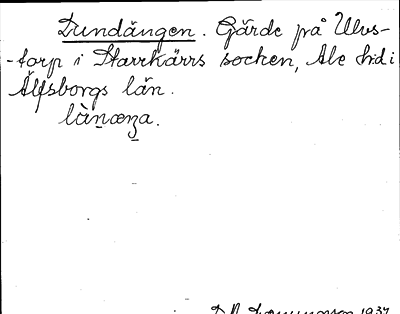 Lundängen. Gärde på Ulvs-
-torp i Starrkärrs socken, Ale hd i
Älfsborgs län.
1937